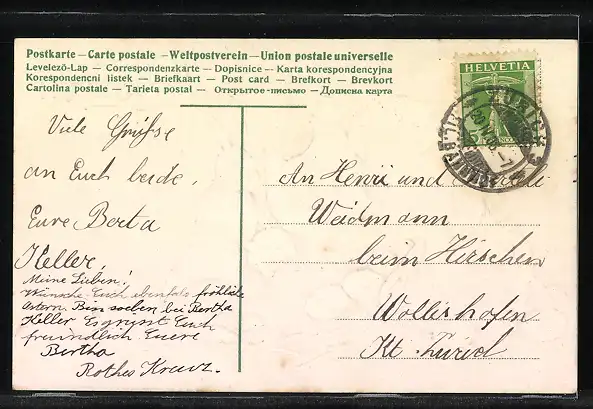 Postkarte — Carte postale — Weltpostverein — Union postale universelle
Levelező-Lap — Correspondenzkarte — Dopisnice — Karta korespondencyjna
Korespondencni listek — Briefkaart — Post card — Brefkort — Brevkort
Cartolina postale — Tarieta postal — Открытое письмо — Дописна карта
HELVETIA
ZÜRICH
Viele Grüsse
an Euch beide,
Eure Berta
Heller,
Meine Lieben!
Wünsche Euch ebenfalls fröhliche
Ostern. Bin soeben bei Bertha
Heller Es grüsst Euch
freundlich Euere
Bertha
Rothes Kreuz.
An Henri und
Weidmann
beim Hirschen
Wollishofen
Kt. Zürich